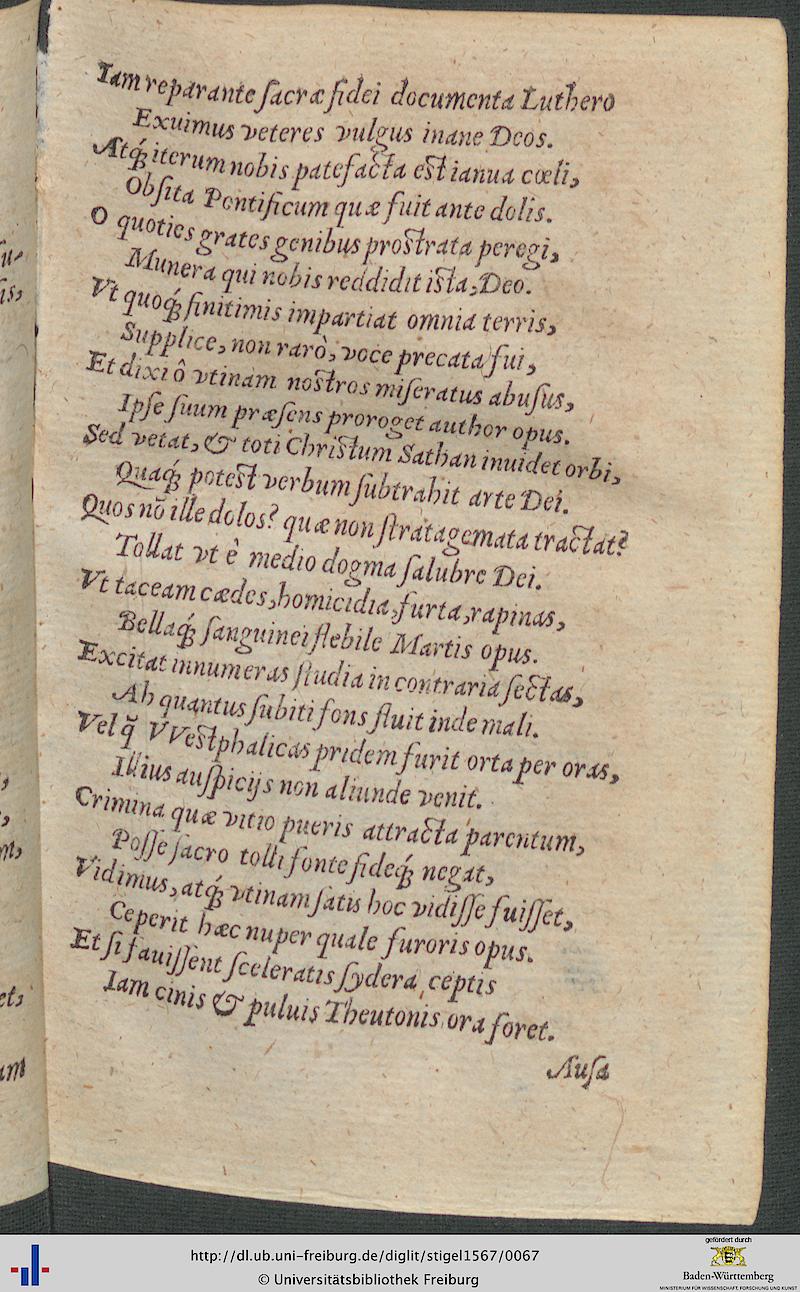 Iam reparante ſacræ fidei documenta Luthero
Exuimus veteres vulgus inane Deos.
Atq́; iterum nobis patefacta eſt ianua cœli,
Obſita Pontificum quæ fuit ante dolis.
O quoties grates genibus proſtrata peregi,
Munera qui nobis reddidit iſta, Deo.
Vt quoq́; finitimis impartiat omnia terris,
Supplice, non rarò, voce precata fui,
Et dixi ô vtinam noſtros miſeratus abuſus,
Ipſe ſuum præſens proroget author opus.
Sed vetat, & toti Chriſtum Sathan inuidet orbi,
Quaq́; poteſt verbum ſubtrahit arte Dei.
Quos nō ille dolos? quæ non ſtratagemata tractat?
Tollat vt è medio dogma ſalubre Dei.
Vt taceam cædes, homicidia, furta, rapinas,
Bellaq́; ſanguinei flebile Martis opus.
Excitat innumeras ſtudia in contraria ſectas,
Ah quantus ſubiti fons fluit inde mali.
Vel q̃ VVeſtphalicas pridem furit orta per oras,
Illius auſpicijs non aliunde venit.
Crimina quæ vitio pueris attracta parentum,
Poſſe ſacro tolli fonte fideq́; negat,
Vidimus, atq́; vtinam ſatis hoc vidiſſe fuiſſet,
Ceperit hæc nuper quale furoris opus.
Et ſi fauiſſent ſceleratis ſydera ceptis
Iam cinis & puluis Theutonis ora foret.
Auſa
u-
is,
,
,
m,
et,
um
http://dl.ub.uni-freiburg.de/diglit/stigel1567/0067
© Universitätsbibliothek Freiburg
gefördert durch
Baden-Württemberg
MINISTERIUM FÜR WISSENSCHAFT, FORSCHUNG UND KUNST